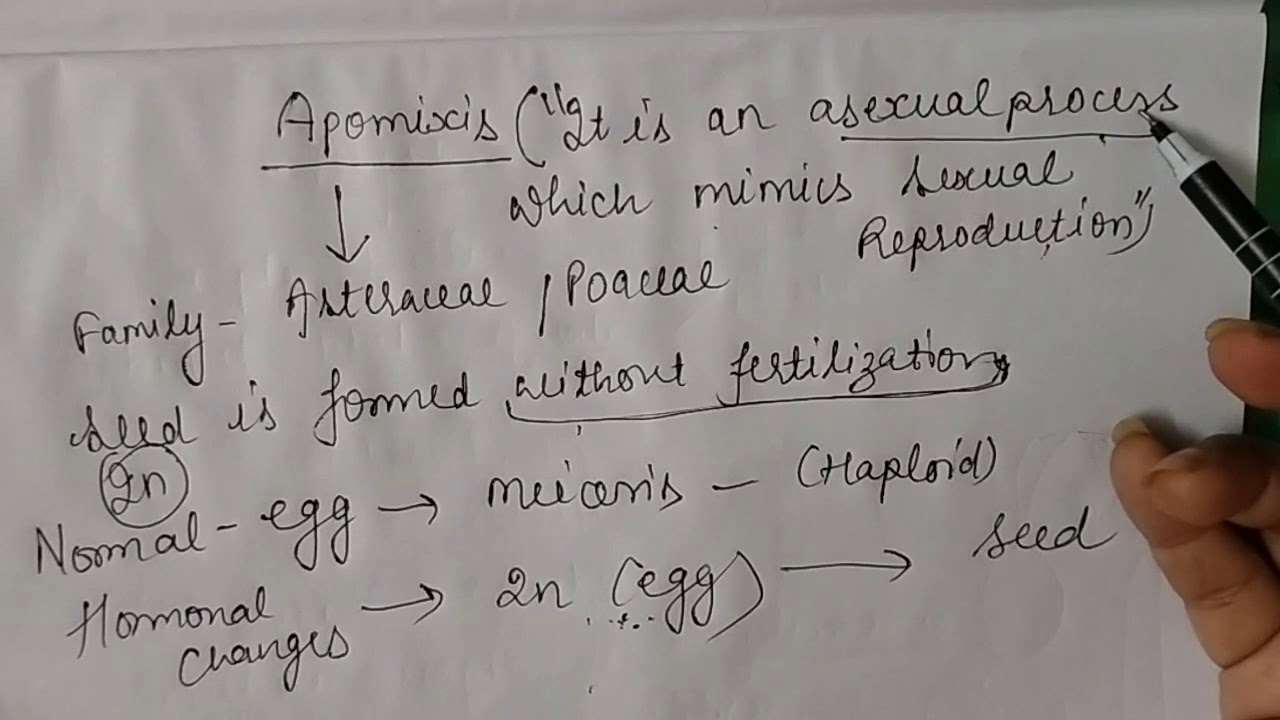 Apomixis ("It is an asexual process
which mimics sexual
Reproduction")
↓
Family - Asteraceae / Poaceae
seed is formed without fertilization
2n
Normal - egg → meiosis - (Haploid)
Hormonal changes → 2n (egg) → seed